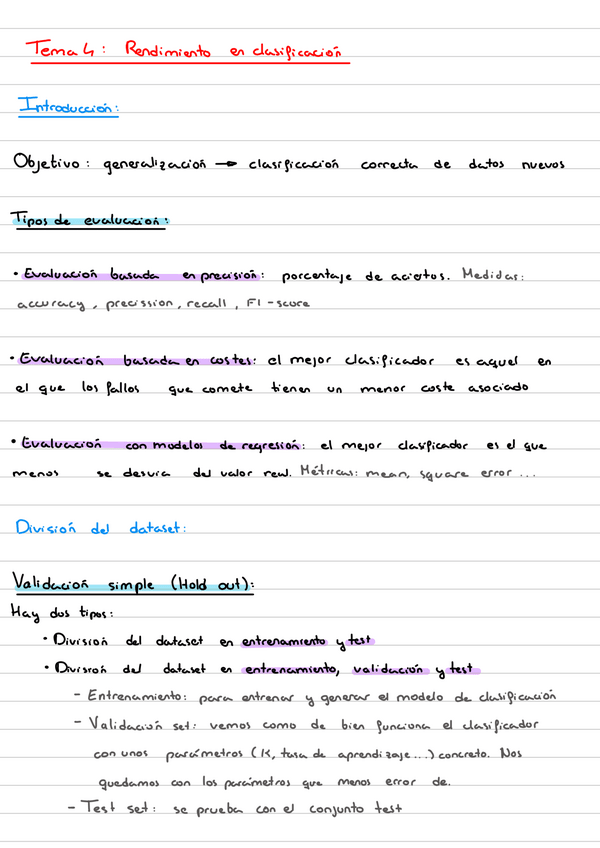 Tema 4: Rendimiento en clasificación
Introducción:
Objetivo: generalización → clasificación correcta de datos nuevos
Tipos de evaluación:
• Evaluación basada en precisión: porcentaje de aciertos. Medidas:
accuracy, precission, recall, F1-score
• Evaluación basada en costes: el mejor clasificador es aquel en
el que los fallos que comete tienen un menor coste asociado
• Evaluación con modelos de regresión: el mejor clasificador es el que
menos se desvía del valor real. Métricas: mean, square error ...
División del dataset:
Validación simple (Hold out):
Hay dos tipos:
• División del dataset en entrenamiento y test
• División del dataset en entrenamiento, validación y test
- Entrenamiento: para entrenar y generar el modelo de clasificación
- Validación set: vemos como de bien funciona el clasificador
con unos parámetros (K, tasa de aprendizaje...) concreto. Nos
quedamos con los parámetros que menos error de.
- Test set: se prueba con el conjunto test